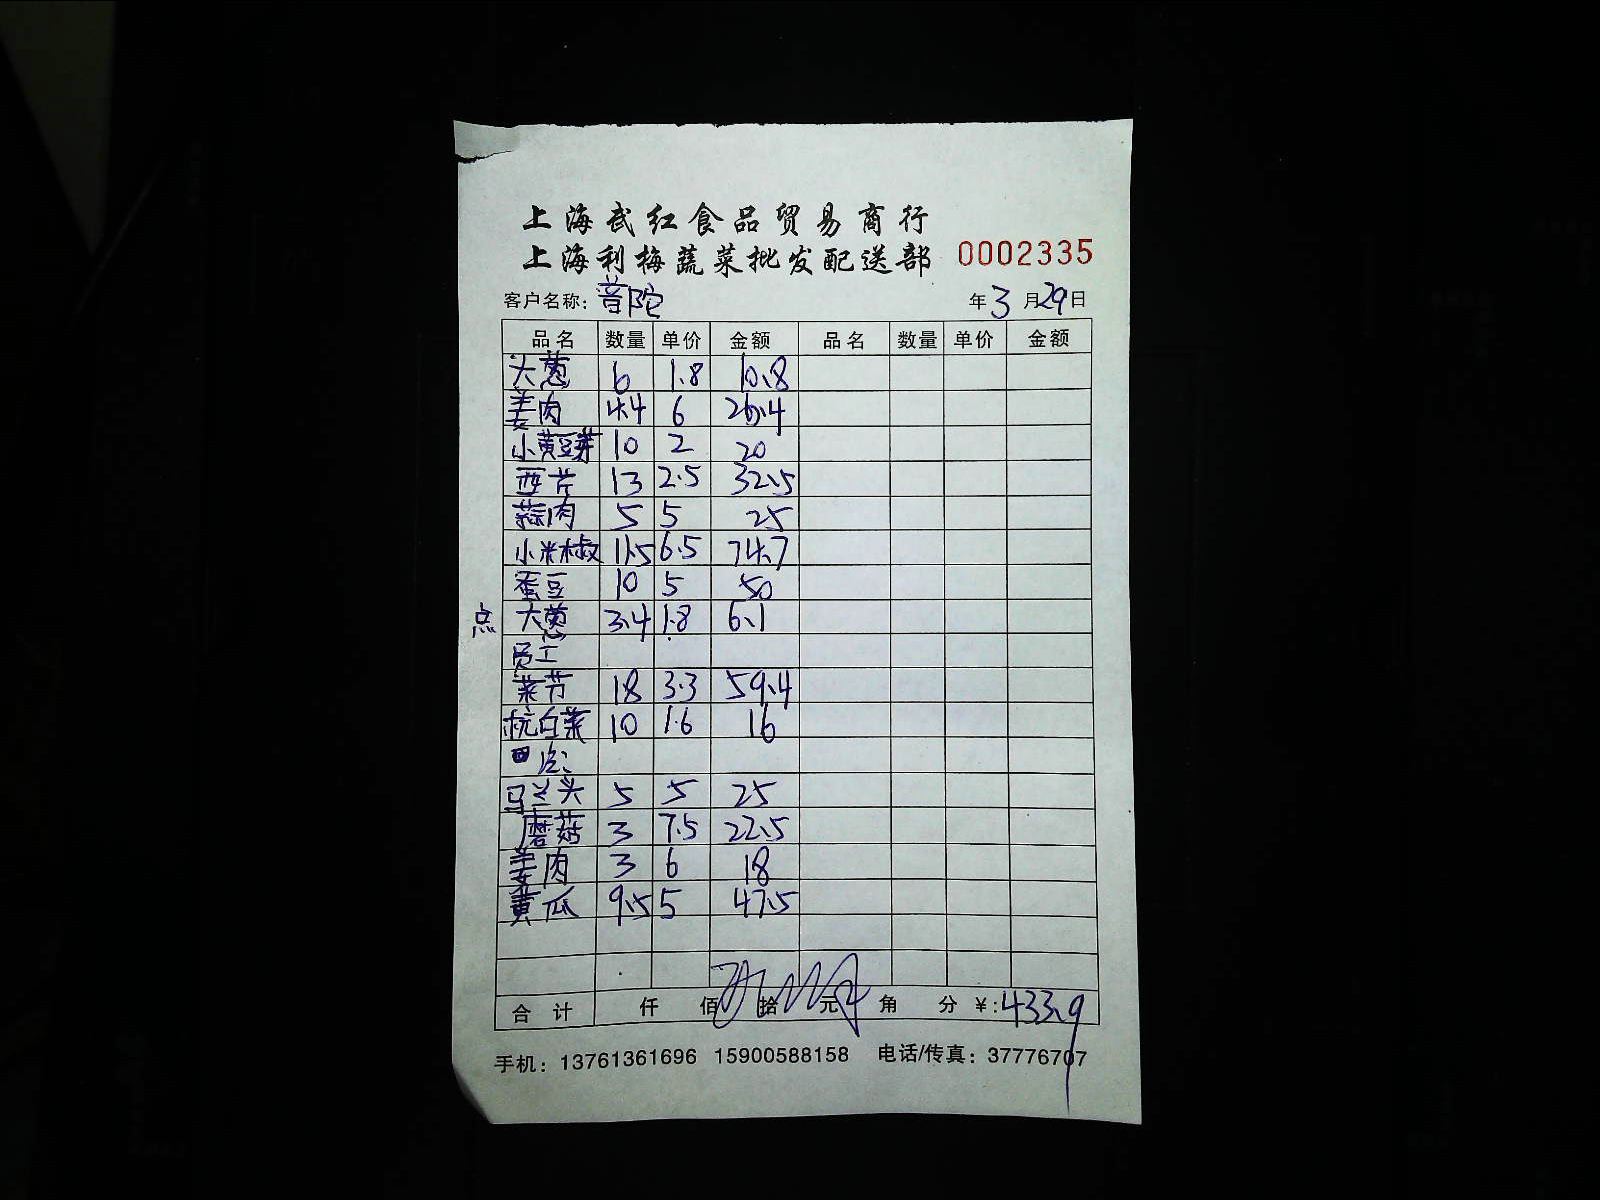 上海武红食品贸易商行
上海利梅蔬菜批发配送部 0002335
客户名称: 普陀 年 3 月 29 日
品名 数量 单价 金额 品名 数量 单价 金额
大葱 6 1.8 10.8
姜肉 4.4 6 26.4
小黄豆芽 10 2 20
西芹 13 2.5 32.5
蒜肉 5 5 25
小米椒 11.5 6.5 74.7
蚕豆 10 5 50
点 大葱 3.4 1.8 6.1
员工
菜节 18 3.3 59.4
杭白菜 10 1.6 16
马兰头 5 5 25
蘑菇 3 7.5 22.5
姜肉 3 6 18
黄瓜 9.5 5 47.5
合计 仟 佰 拾 元 角 分 ¥: 433.9
手机: 13761361696 15900588158 电话/传真: 37776707